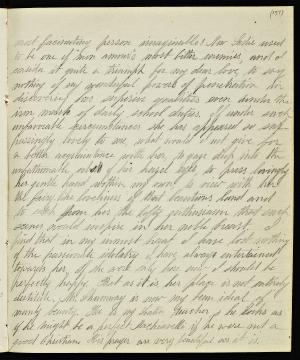 (157)
most fascinating person imaginable! Now Leslie used
to be one of mon amour's most bitter enemies, and I
consider it quite a triumph for my dear love to say
nothing of my wonderful powers of penetration in
discovering her superior qualities even under the
iron mask of daily school duties. If under such
unfavorable circumstances she has appeared so sur-
passingly lovely to me, what would I not give for
a better acquaintance with her, to gaze deep into the
unfathomable of her hazel eyes to press lovingly
her gentle hand within my own, to with her
the fairy like loveliness of that beauteous land and
to from her the lofty enthusiasm that such
scenes would inspire in her noble breast. I
find that in my inmost heart I have lost nothing
of the passionate idolatry I have always entertained
towards her, if she were only here now I should be
perfectly happy. But as it is her place is not entirely
destitute. Mr. is now my beau ideal of
manly beauty. He is my teacher & he looks as
if he might be a perfect if he were not a
good Christian. His prayers are very beautiful as it is.